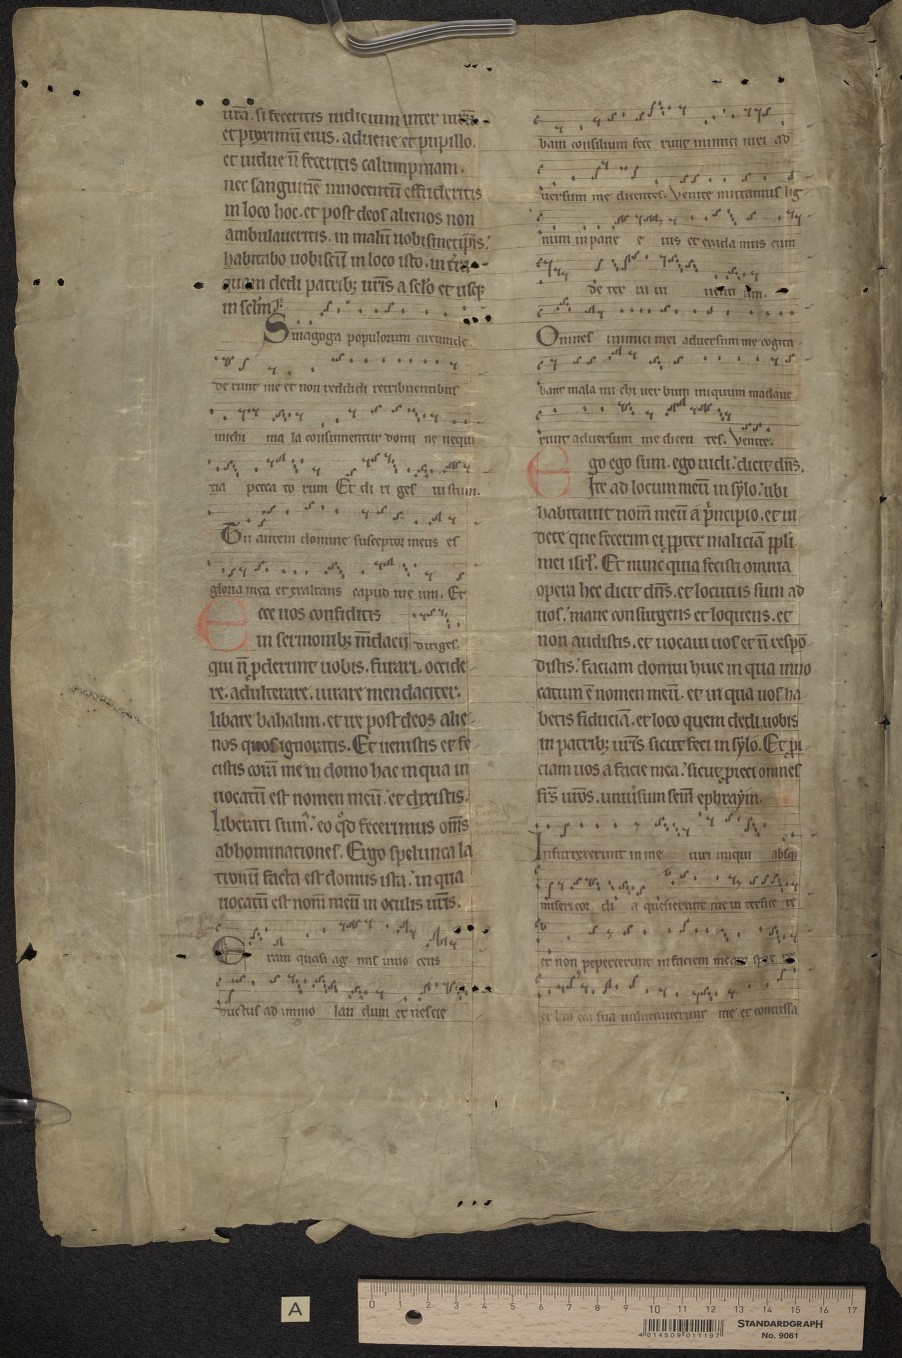 ur̄a. si feceritis iudicium inter uirū
et proximū eius. aduene et pupillo.
et uidue n̄ feceritis calumpniam.
nec sanguinē innocentū effuderitis
in loco hoc. et post deos alienos non
ambulaueritis. in malū uobismetip̄is.
habitabo uobiscū in loco isto. in t̄ra
quam dedi patrib; ur̄is a sclo et usq;
in sclm̄.
Sinagoga populorum circumde
de runt me et non reddidi retribuentibus
michi ma la consumentur domi ne nequi
tia pecca to rum Et di ri ges iustum.
Tu autem domine susceptor meus es
gloria mea et exaltans capud me um. Et
Ecce uos confiditis
in sermonib; m̄dacii diriges.
qui n̄ p̱derunt uobis. furari. occide
re. adulterare. iurare mendaciter.
libare bahalim. et ire post deos alie
nos quos ignoratis. Et uenistis et ste
tistis corā me in domo hac in qua in
uocatū est nomen meū. et dixistis.
Liberati sum'. eo q̄d fecerimus om̄s
abhominationes. Ergo spelunca la
tronū facta est domus ista. in qua
uocatū est nom̄ meū in oculis ur̄is.
Eram quasi ag nus inno cens
ductus ad immo lan dum et nescie
bam consilium fece runt inimici mei ad
uersum me dicentes. Venite mittamus lig
num in pane e ius et eradamus eum
de ter ra ui uenti um.
Omnes inimici mei aduersum me cogita
bant mala mi chi uer bum iniquum madaue
runt aduersum me dicen tes. Venite.
Ego ego sum. ego uidi. dicit dn̄s.
Ite ad locum meū in sylo. ubi
habitauit nom̄ meū a p̄ncipio. et ui
dete que fecerim ei p̱pter maliciā pp̄li
mei isrl̄. Et nunc quia fecistis omnia
opera hec dicit dn̄s. et locutus sum ad
uos. mane consurgens et loquens. et
non audistis. et uocaui uos et n̄ respō
distis. faciam domui huic in qua inuo
catum ē nomen meū. et in qua uos ha
betis fiduciā. et loco quem dedi uobis
in patrib; ur̄is sicut feci in sylo. Et pi
ciam uos a facie mea. sicut pieci omnes
fr̄s ur̄os. uniūsum sem̄ ephraym.
Insurrexerunt in me uiri iniqui absq;
misericor di a quesierunt me interfice re
et non pepercerunt in faciem meam spue re
et lan cea sua uulnerauerunt me et concussa
A
0 1 2 3 4 5 6 7 8 9 10 11 12 13 14 15 16 17
STANDARDGRAPH
No. 9061
4 014509 011197